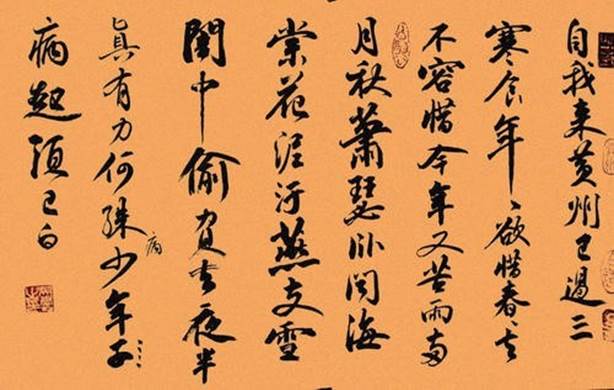 自我来黄州已過三
寒食年〻欲惜春〻去
不容惜今年又苦雨兩
月秋蕭瑟卧闻海
棠花泥汙燕支雪
闇中偷負去夜半
真有力何殊少年子
病
病起頭已白